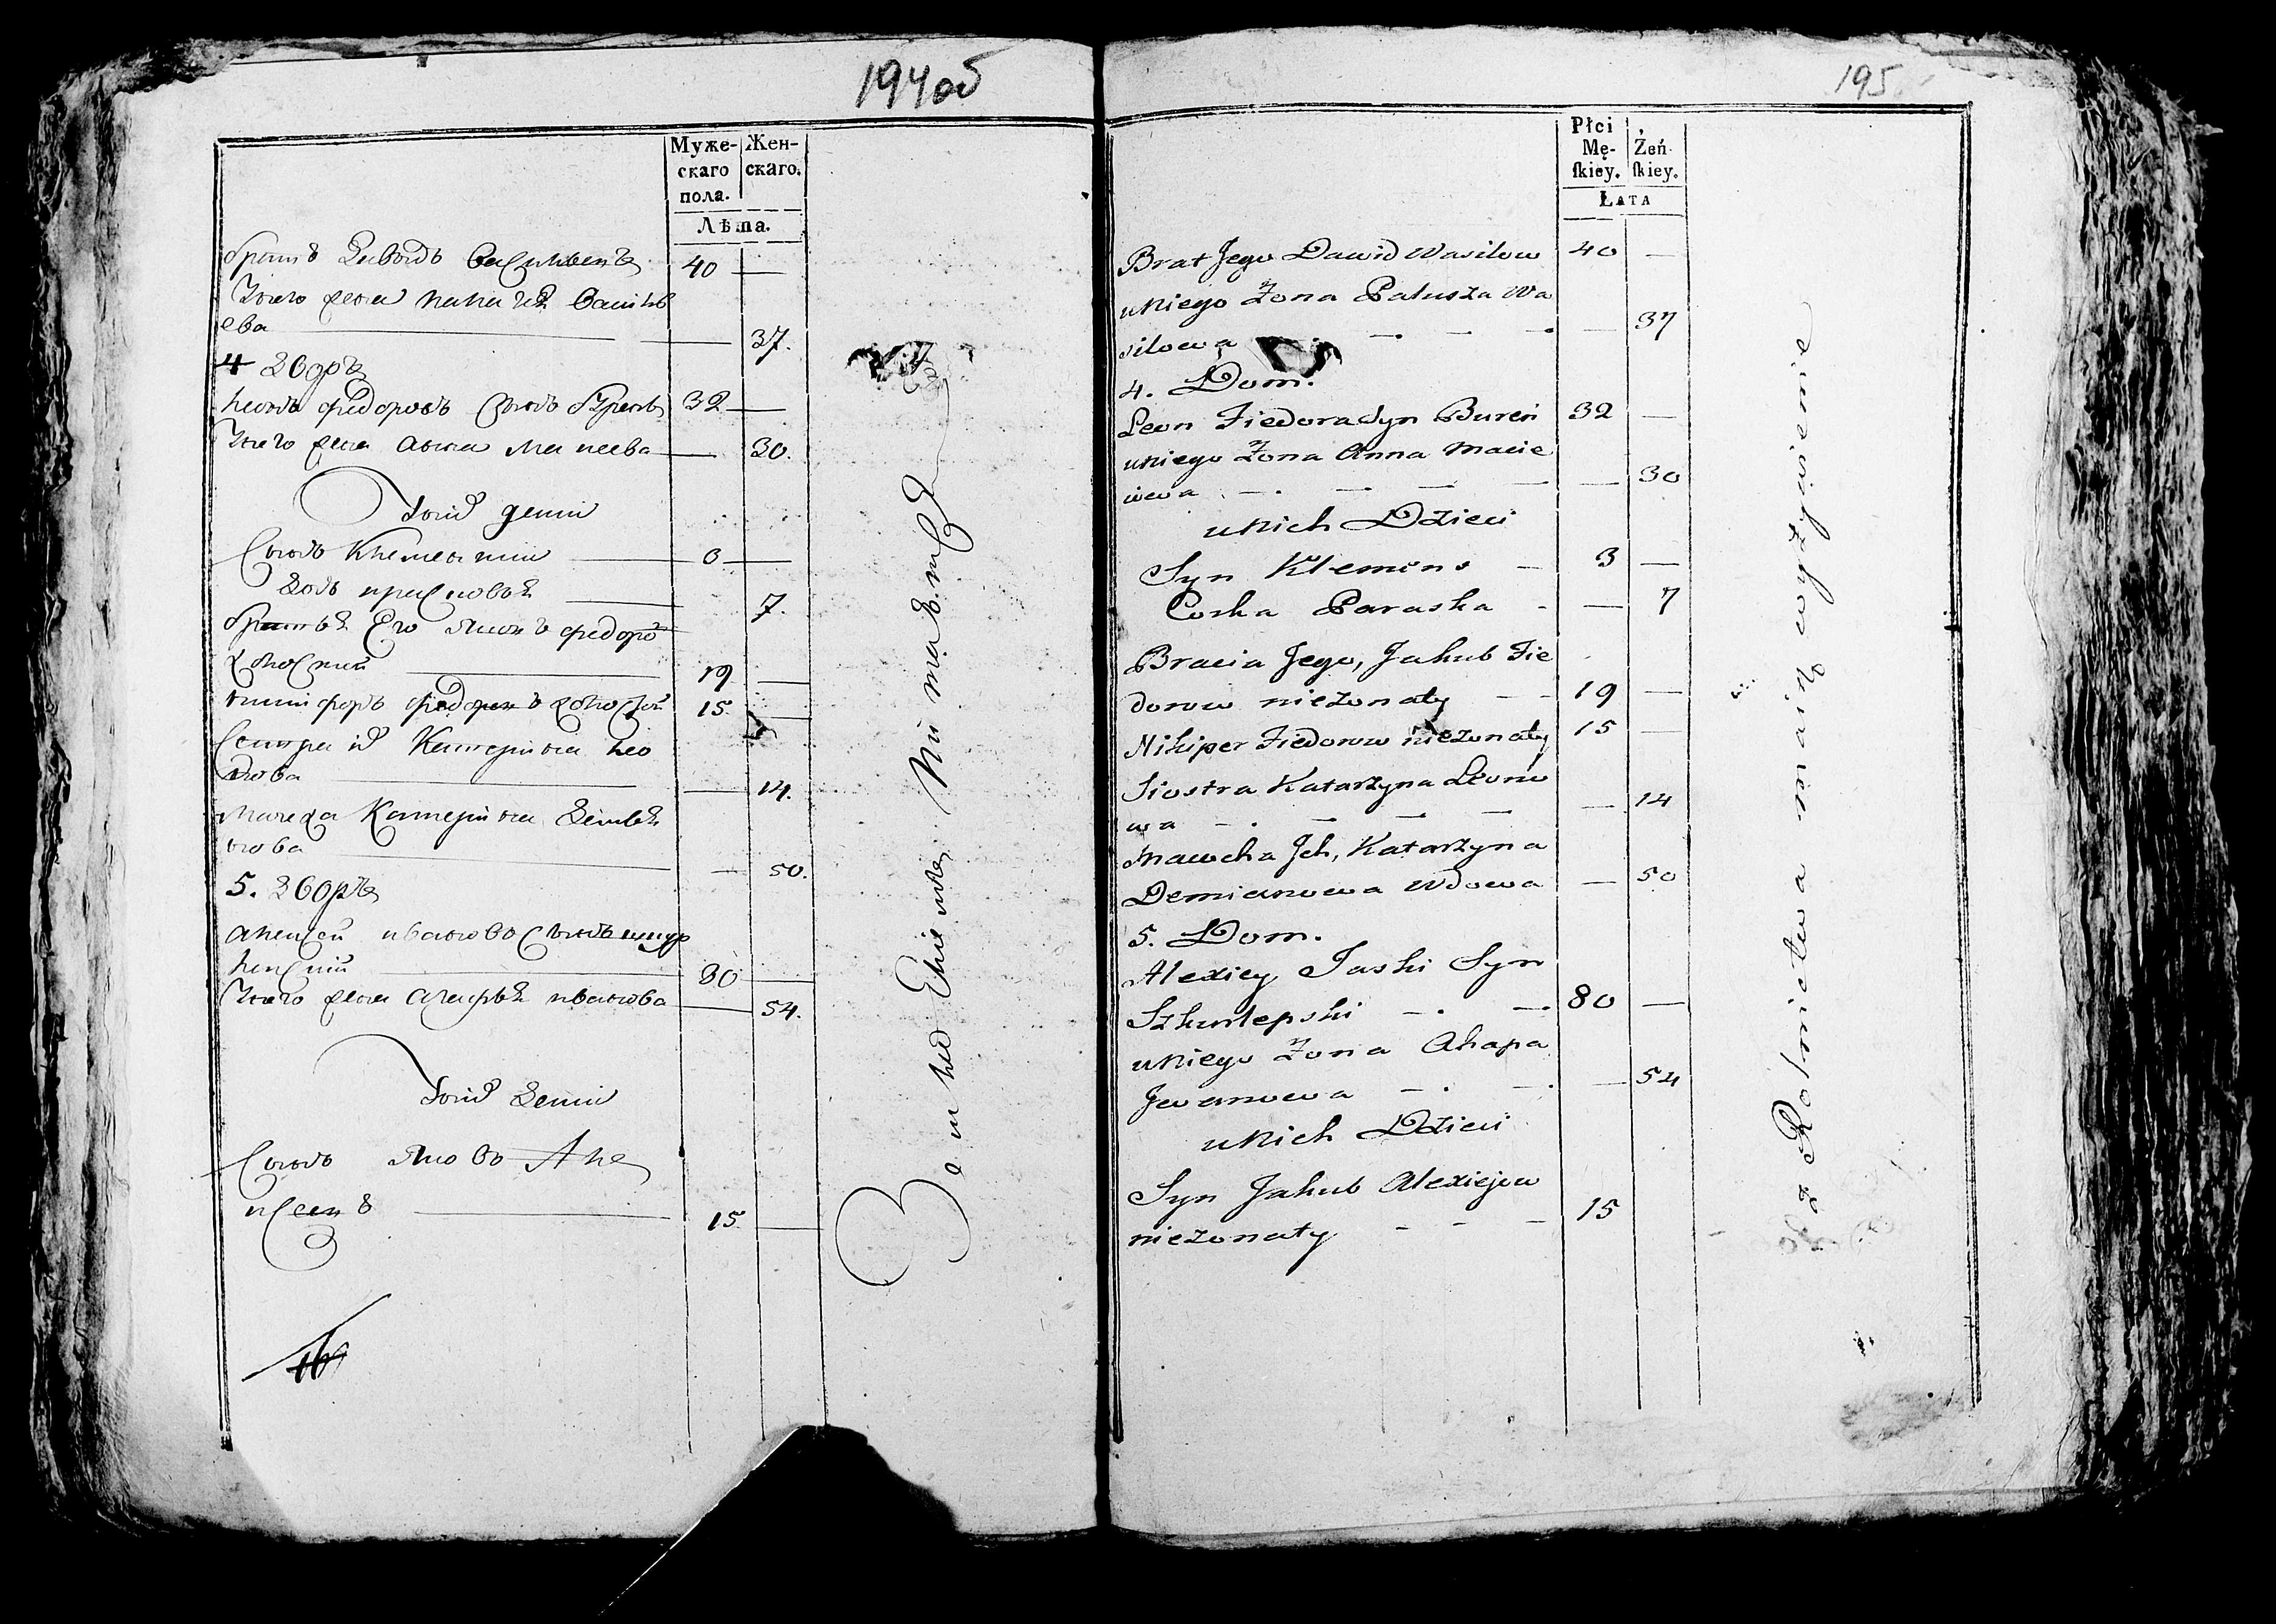 194об
Муже- Жен-
скаго скаго.
пола.
Лѣта.
братъ Давыдъ 40 —
унего жена
ева 37.
4 дворъ
Леонъ федоровъ сынъ 32 —
унего жена анна — 30.
унихъ дети
сынъ Клементий — 3 —
дочь — 7.
братья Его федоро
холостый 19 —
никифоръ холостый 15 —
сестра их Катерина лео
нова — 14.
мачеха Катерина демья
нова — 50.
5. дворъ
алексей ивановъ сынъ шкур
лепский 80 —
унего жена агафья иванова — 54.
унихъ дети
сынъ яковъ але
ксеевъ 15 —
195
Płci Żeń-
Mę- skiey.
skiey.
Łata
Brat Jego Dawid Wasilow 40 —
uniego Żona Palusza Wa
silowa — — — 37
4. Dom.
Leon Fiedora Syn Bureń 32 —
uniego Żona Anna Macie
iewa — — — 30
unich Dzieci
Syn Klemens — 3 —
Corka Paraska — — 7
Bracia Jego, Jakub Fie
dorow nieżonaty — — 19 —
Nikiper Fiedorow nieżonaty 15 —
Siostra Katarzyna Leono
wa — — — — 14
Mawcha Jch, Katarzyna
Demianowa Wdowa — 50
5. Dom.
Alexiey Jaski Syn
Szkurlepski — — 80 —
uniego Żona Ahapa
Jwanowa — — — 54
unich Dzieci
Syn Jakub Alexiejow
nieżonaty — — — 15
z Rolnictwa maią wyżywienie